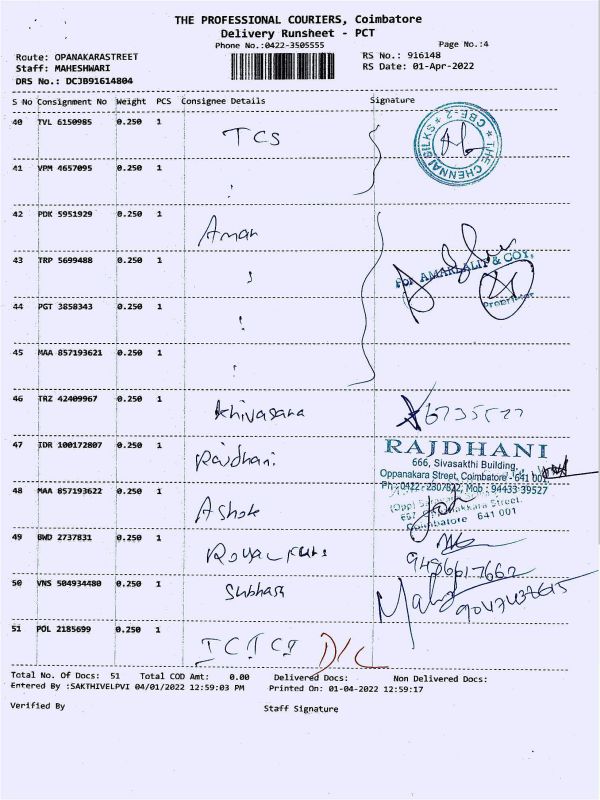 THE PROFESSIONAL COURIERS, Coimbatore
Delivery Runsheet - PCT
Phone No.:0422-3505555
Page No.:4
Route: OPANAKARASTREET
Staff: MAHESHWARI
DRS No.: DCJB91614804
RS No.: 916148
RS Date: 01-Apr-2022
S No Consignment No Weight PCS Consignee Details Signature
40 TVL 6150985 0.250 1 TCS
THE CHENNAI SILKS ★ CBE-2 ★
41 VPM 4657095 0.250 1
42 PDK 5951929 0.250 1 Aman
43 TRP 5699488 0.250 1
For AMARLALIT & COY.,
Proprietor
44 PGT 3858343 0.250 1
45 MAA 857193621 0.250 1
46 TRZ 42409967 0.250 1 Khivasara
47 IDR 100172807 0.250 1 Rajdhani
RAJDHANI
666, Sivasakthi Building,
Oppanakara Street, Coimbatore - 641 001
Ph : 0422 - 2307822, Mob : 94433 39527
48 MAA 857193622 0.250 1 Ashok
Coimbatore 641 001
49 BWD 2737831 0.250 1 Royal
50 VNS 504934480 0.250 1 Subhash
51 POL 2185699 0.250 1 ICICI D/C
Total No. Of Docs: 51 Total COD Amt: 0.00 Delivered Docs: Non Delivered Docs:
Entered By :SAKTHIVELPVI 04/01/2022 12:59:03 PM Printed On: 01-04-2022 12:59:17
Verified By Staff Signature